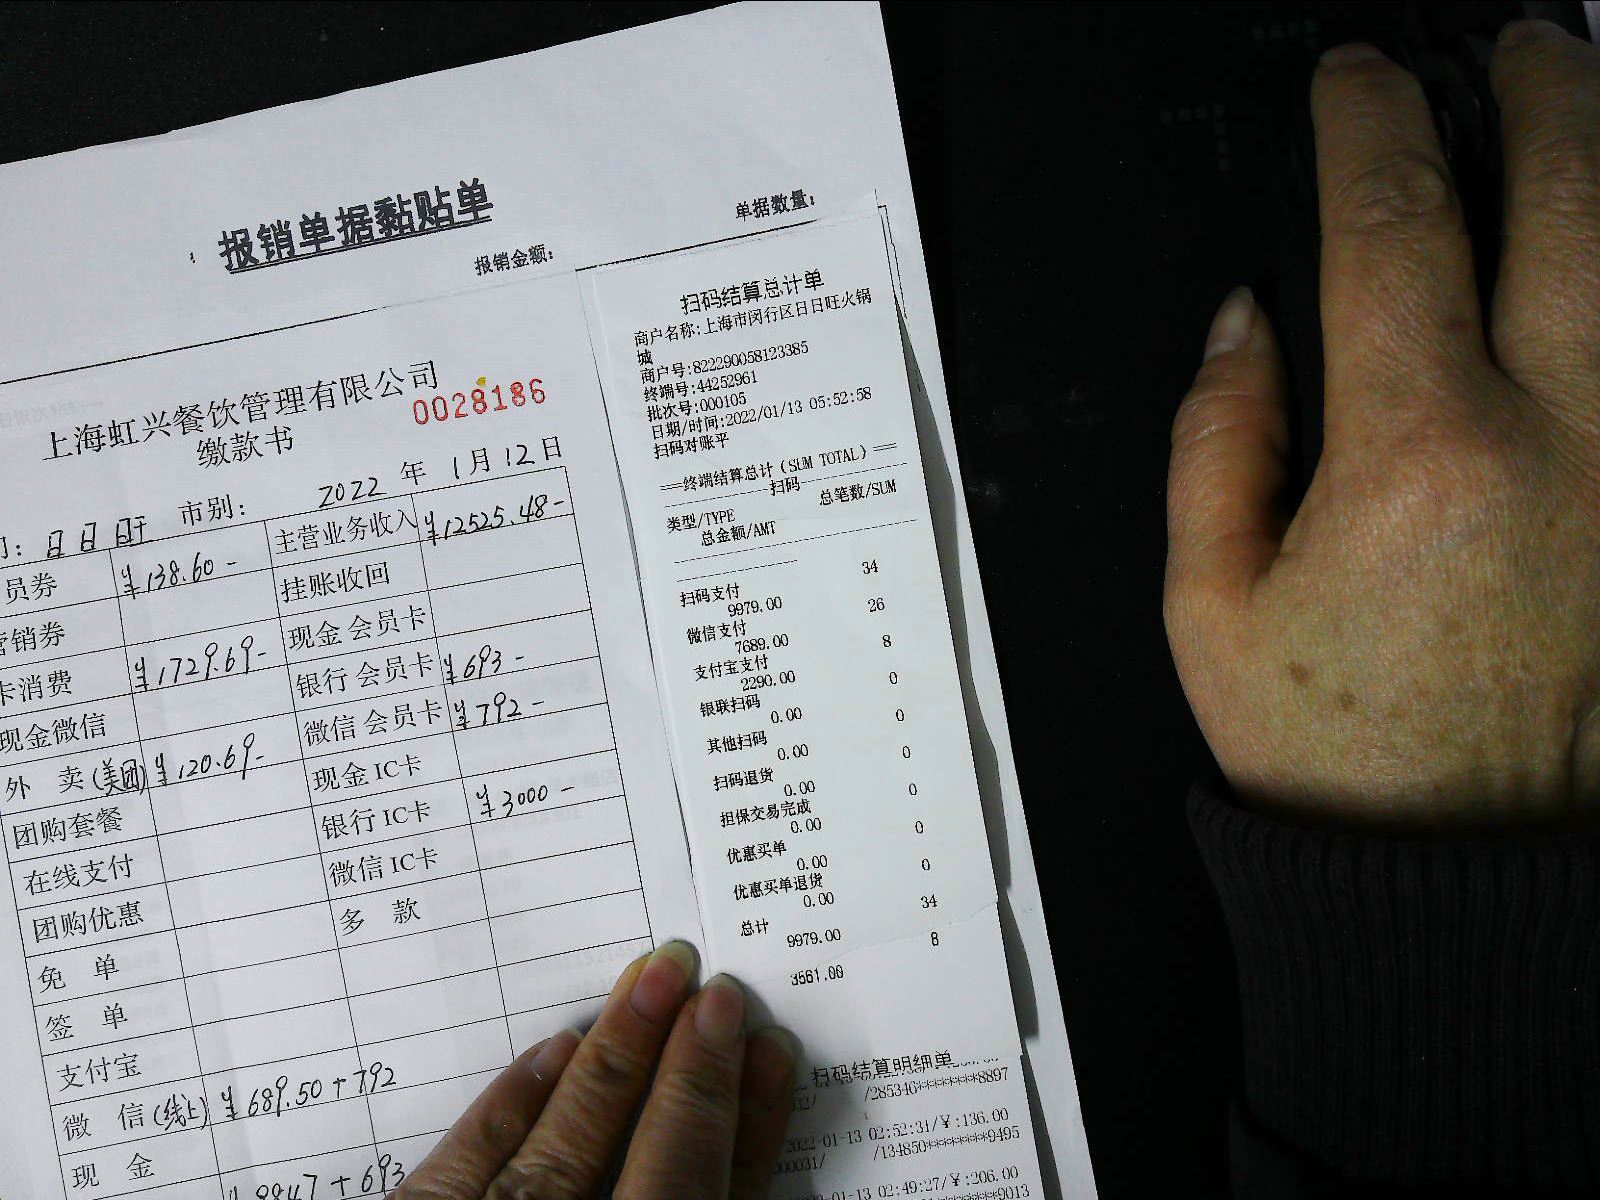 报销单据黏贴单
报销金额:
单据数量:
上海虹兴餐饮管理有限公司
缴款书
0028186
市别: 2022 年 1 月 12 日
员券 ¥138.60 - 主营业务收入 ¥12525.48 -
营销券 挂账收回
卡消费 ¥1729.69 - 现金 会员卡
现金微信 银行 会员卡 ¥693 -
外 卖(美团) ¥120.69 - 微信 会员卡 ¥792 -
团购套餐 现金 IC卡
在线支付 银行 IC卡 ¥3000 -
团购优惠 微信 IC卡
免 单 多 款
签 单
支付宝
微 信(线上) ¥689.50 + 792
现 金
+ 693
扫码结算总计单
商户名称:上海市闵行区日日旺火锅
城
商户号:822290058123385
终端号:44252961
批次号:000105
日期/时间:2022/01/13 05:52:58
扫码对账平
===终端结算总计(SUM TOTAL)===
扫码
类型/TYPE 总笔数/SUM
总金额/AMT
扫码支付 34
9979.00
微信支付 26
7689.00
支付宝支付 8
2290.00
银联扫码 0
0.00
其他扫码 0
0.00
扫码退货 0
0.00
担保交易完成 0
0.00
优惠买单 0
0.00
优惠买单退货 0
0.00
总计 34
9979.00
8
3561.00
扫码结算明细单
/285346********8897
2022-01-13 02:52:31/¥:136.00
000031/ /134850********9495
02:49:27/¥:206.00
9013